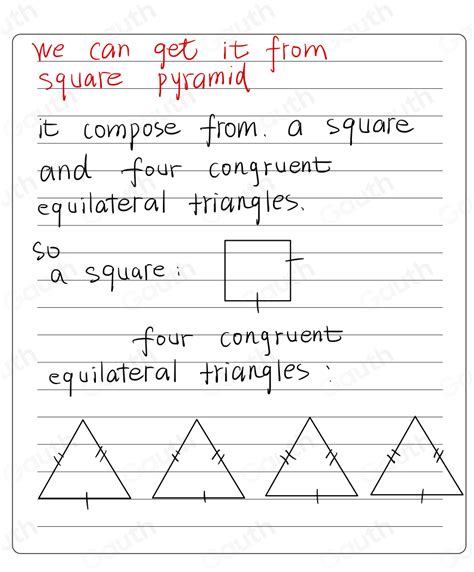 we can get it from
square pyramid
it compose from. a square
and four congruent
equilateral triangles.
so
a square:
four congruent
equilateral triangles:
Gauth